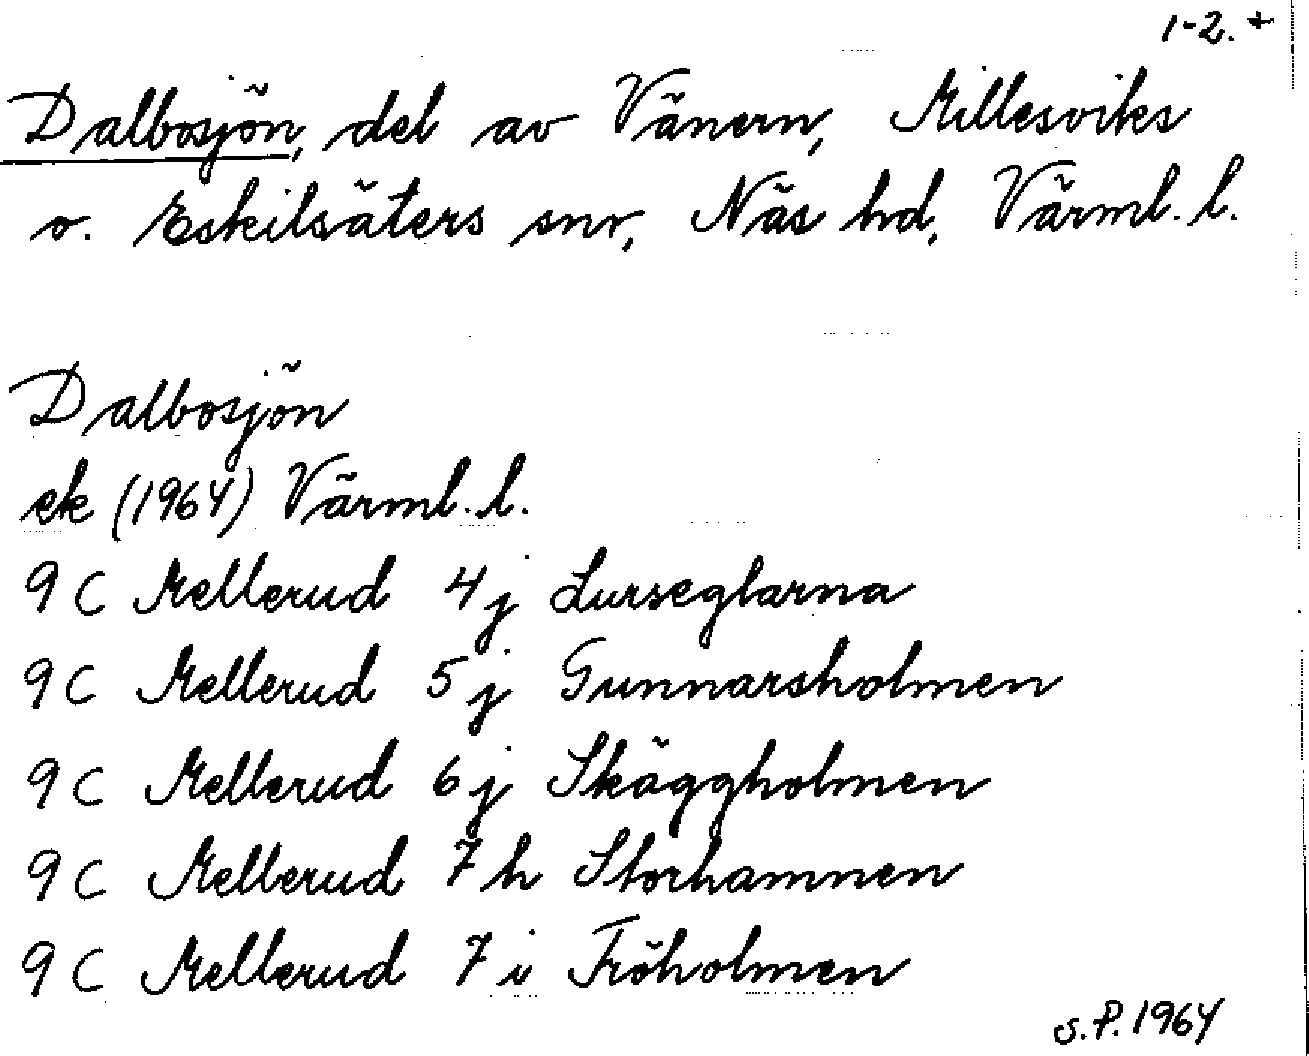 1-2. +
Dalbosjön, del av Vänern, Millesviks
o. Eskilsäters snr, Näs hd, Värml. l.
Dalbosjön
ek (1964) Värml. l.
9 C Mellerud 4 j Lurseglarna
9 C Mellerud 5 j Gunnarsholmen
9 C Mellerud 6 j Skäggholmen
9 C Mellerud 7 h Storhamnen
9 C Mellerud 7 i Fröholmen
S.P. 1964